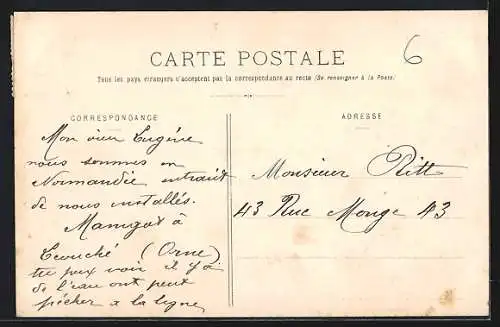 6
CARTE POSTALE
Tous les pays étrangers n'acceptent pas la correspondance au recto (Se renseigner à la Poste)
CORRESPONDANCE
Mon vieux Eugène
nous sommes en
Normandie entrain
de nous installés.
à
Ecouché (Orne)
tu peux voir il y a
de l'eau ont peut
pêcher a la ligne
ADRESSE
Monsieur Ritt
43 Rue Monge 43